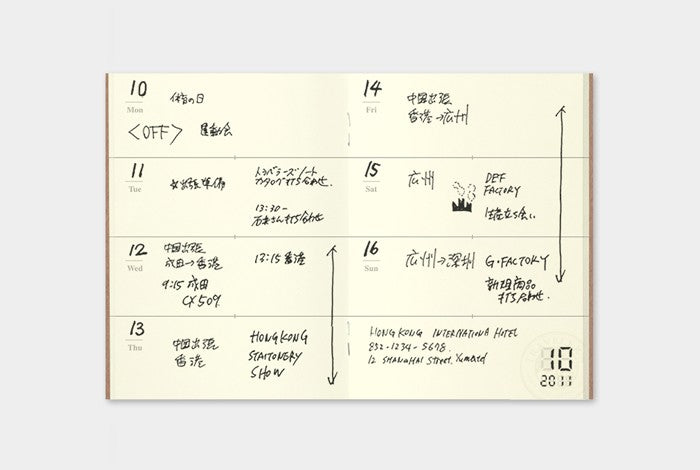 10
Mon
体育の日
<OFF> 運動会
11
Tue
出張準備
トラベラーズノート
カタログ打ち合わせ.
13:30-
石井さん打ち合わせ
12
Wed
中国出張
成田→香港
9:15 成田
CX509.
13:15 香港
13
Thu
中国出張
香港
HONGKONG
STATIONERY
SHOW
14
Fri
中国出張
香港→広州
15
Sat
広州
DEF
FACTORY
立ち会い
16
Sun
広州→深圳
G・FACTORY
新規商品
打ち合わせ.
HONG KONG INTERNATIONA HOTEL
852-1234-5678.
12 SHANGHAI Street, Yumatd
10
2011